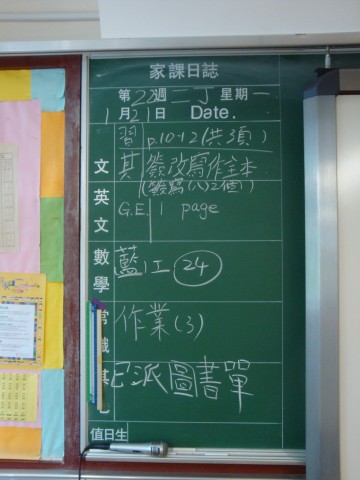 家課日誌
第20週 二丁 星期一
1月21日 Date.
習 p.10-12(共3頁)
文 其 簽改寫作全本
(簽寫(八)2個)
英文 G.E. 1 page
數學 藍江 24
常識 作業(3)
其 已派圖書單
值日生